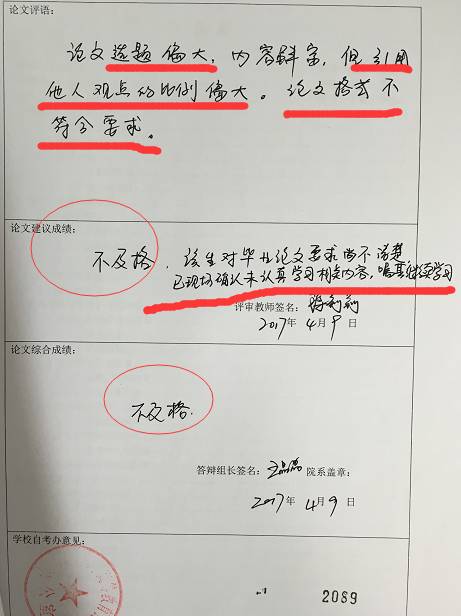 论文评语:
论文选题偏大,内容斜宗,但引用
他人观点的比例偏大。论文格式不
符合要求。
论文建议成绩:
不及格,该生对毕业论文要求尚不清楚,
已现场确认未认真学习相关内容,嘱其继续学习
评审教师签名:
2017年4月9日
论文综合成绩:
不及格.
答辩组长签名: 院系盖章:
2017年4月9日
学校自考办意见:
2089